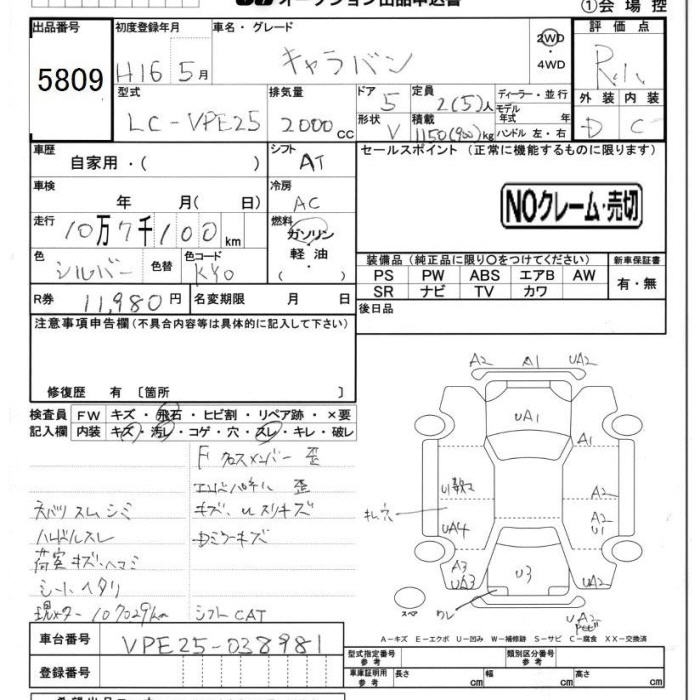 オークション出品申込書
①会場控
出品番号 初度登録年月 車名・グレード 評価点
5809 H16 5月 キャラバン 2WD・4WD
外装 内装
D C
型式 排気量 ドア 定員 ディーラー・並行
LC-VPE25 2000cc 5 2(5)人 モデル年式 年
形状 積載 ハンドル 左・右
V 1150(900)kg
車歴 シフト セールスポイント (正常に機能するものに限ります)
自家用・( ) AT
車検 冷房
年 月( 日) AC
NOクレーム・売切
走行 燃料
10万7千100km ガソリン・軽油・( )
色 色替 色コード 装備品 (純正品に限り○をつけてください) 新車保証書
シルバー KY0 PS PW ABS エアB AW 有・無
SR ナビ TV カワ
R券 11,980円 名変期限 月 日 後日品
注意事項申告欄(不具合内容等は具体的に記入して下さい)
修復歴 有 〔箇所 〕
検査員 FW キズ・飛石・ヒビ割・リペア跡・×要
記入欄 内装 キズ・汚レ・コゲ・穴・スレ・キレ・破レ
Fクロスメンバー 歪
エンドパネル 歪
スム シミ キズ、uスリキズ
ハンドルスレ Dミラーキズ
荷室キズ・ハマミ
シートヘタリ
現メーター 107029km シフトCAT
A2 A1 UA2
UA1
A1
U数コ A2
キレ穴 A2
U1
UA4
A3 UA3 U3 UA2
スペ ワレ UA2
A-キズ E-エクボ U-凹み W-補修跡 S-サビ C-腐食 XX-交換済
車台番号 VPE25-038981 型式指定番号 参考 類別区分番号 参考
登録番号 車庫証明用 参考 長さ cm 幅 cm 高さ cm